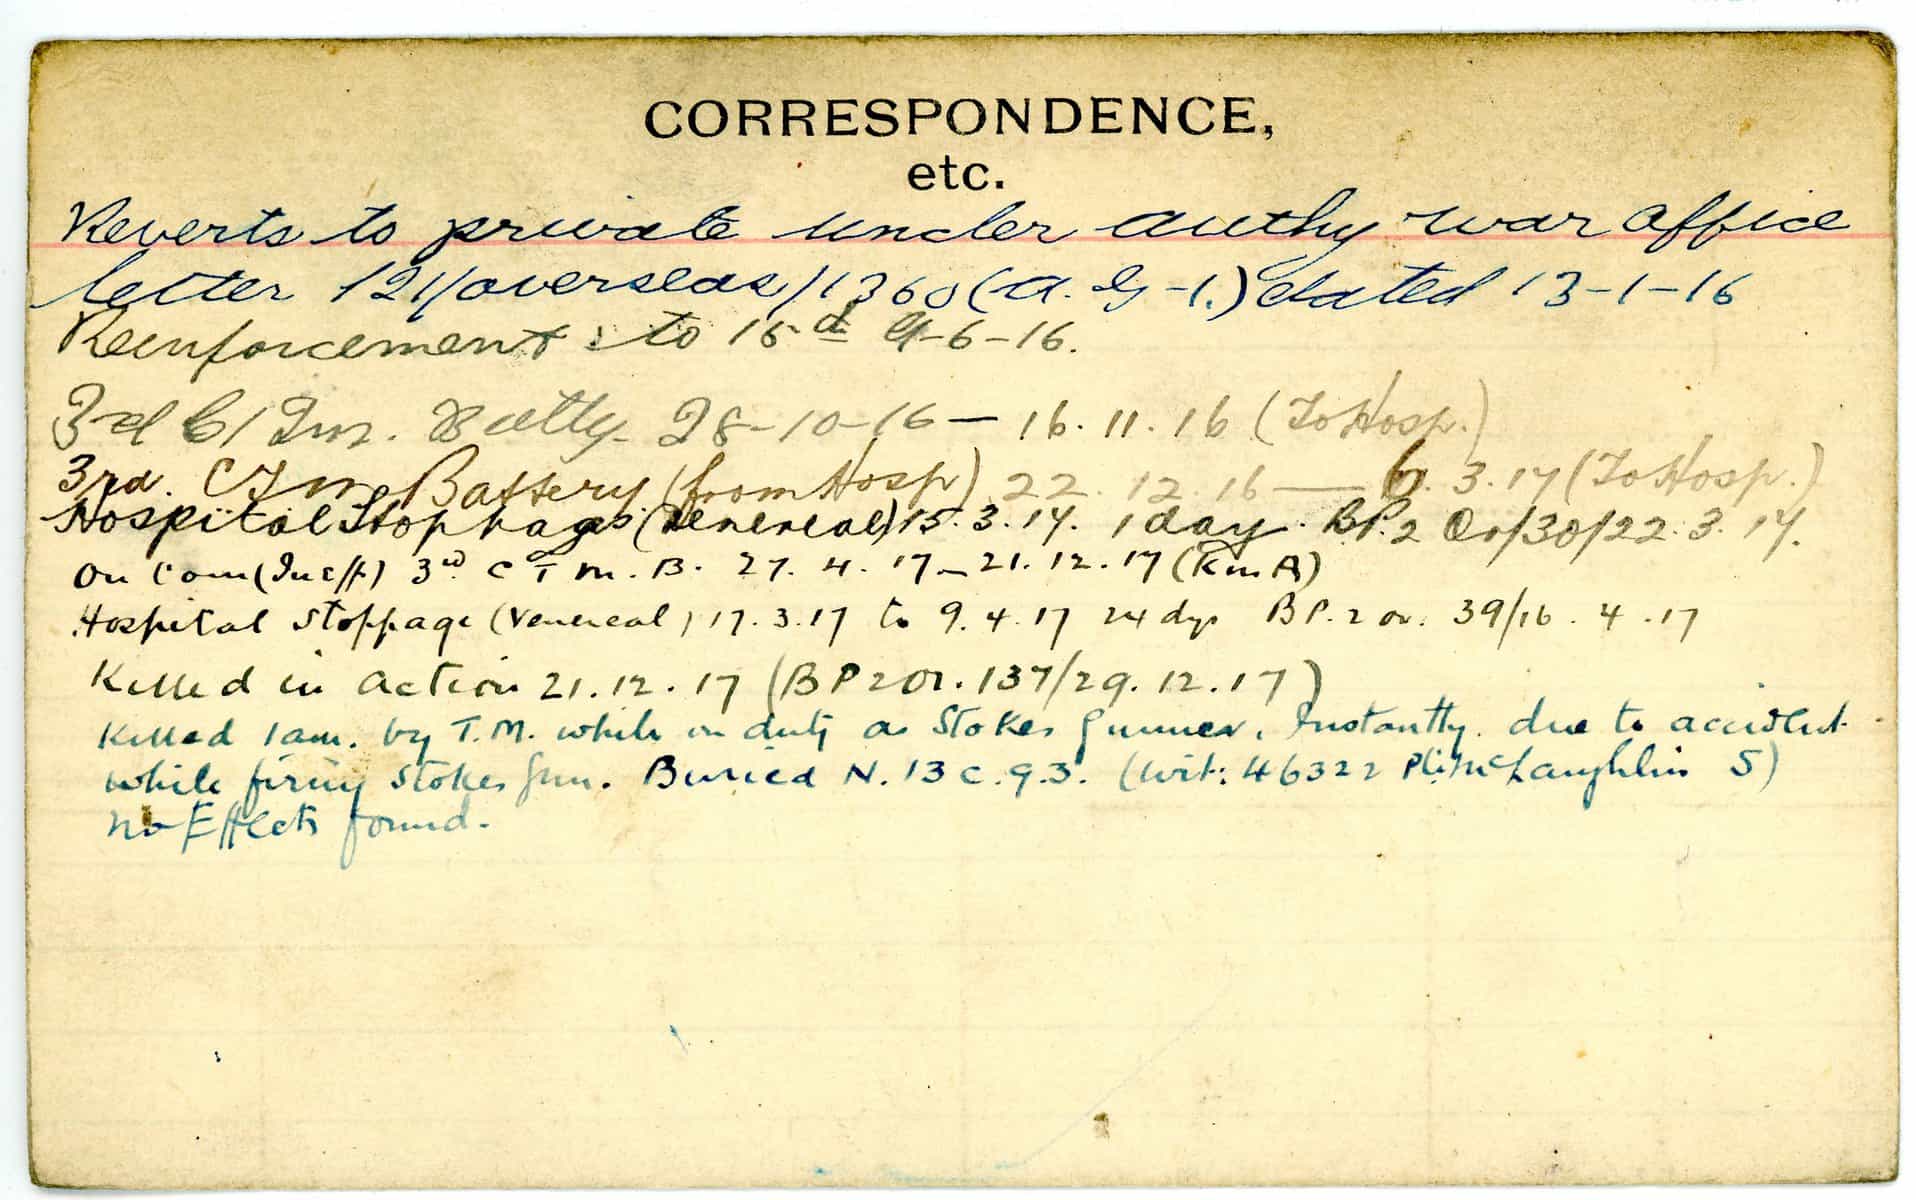 CORRESPONDENCE,
etc.
Reverts to private under authy war office
letter 121/overseas/1360 (A.G-1.) dated 13-1-16
Reinforcement to 15th 9-6-16.
3rd C/Tm. Batty 28-10-16 — 16.11.16 (To Hosp.)
3rd. CTM Battery (from Hosp) 22.12.16 — 6.3.17 (To Hosp.)
Hospital Stoppages (Venereal) 15.3.17. 1 day. BP.2 Or/30/22.3.17.
On Com (In eff) 3rd C T M. B. 27.4.17 – 21.12.17 (K in A)
Hospital Stoppage (Venereal) 17.3.17 to 9.4.17 24 dys BP.2 or. 39/16.4.17
Killed in action 21.12.17 (BP2 Or. 137/29.12.17)
Killed 1am. by T.M. while on duty as Stokes Gunner, Instantly. due to accident
while firing Stokes Gun. Buried N.13 c.9.3. (Wit: 46322 Pte McLaughlin S)
No Effects found.